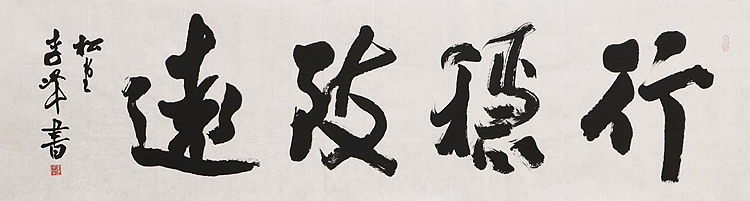 行穩致遠
松堂
吉峰書